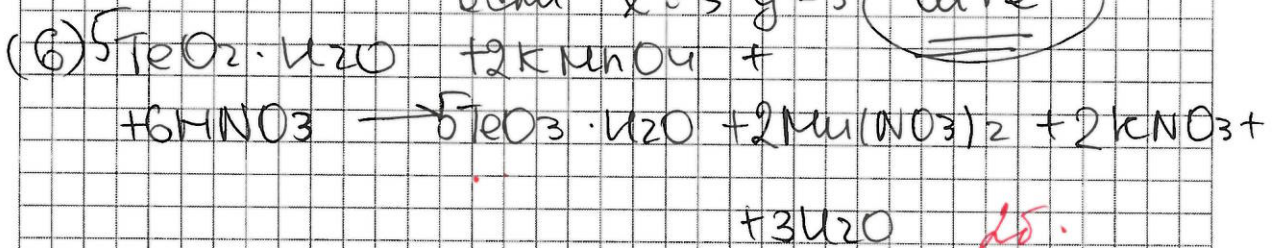 (6) 5TeO2·H2O +2KMnO4 +
+6HNO3 → 5TeO3·H2O +2Mn(NO3)2 +2KNO3+
+3H2O 2б.